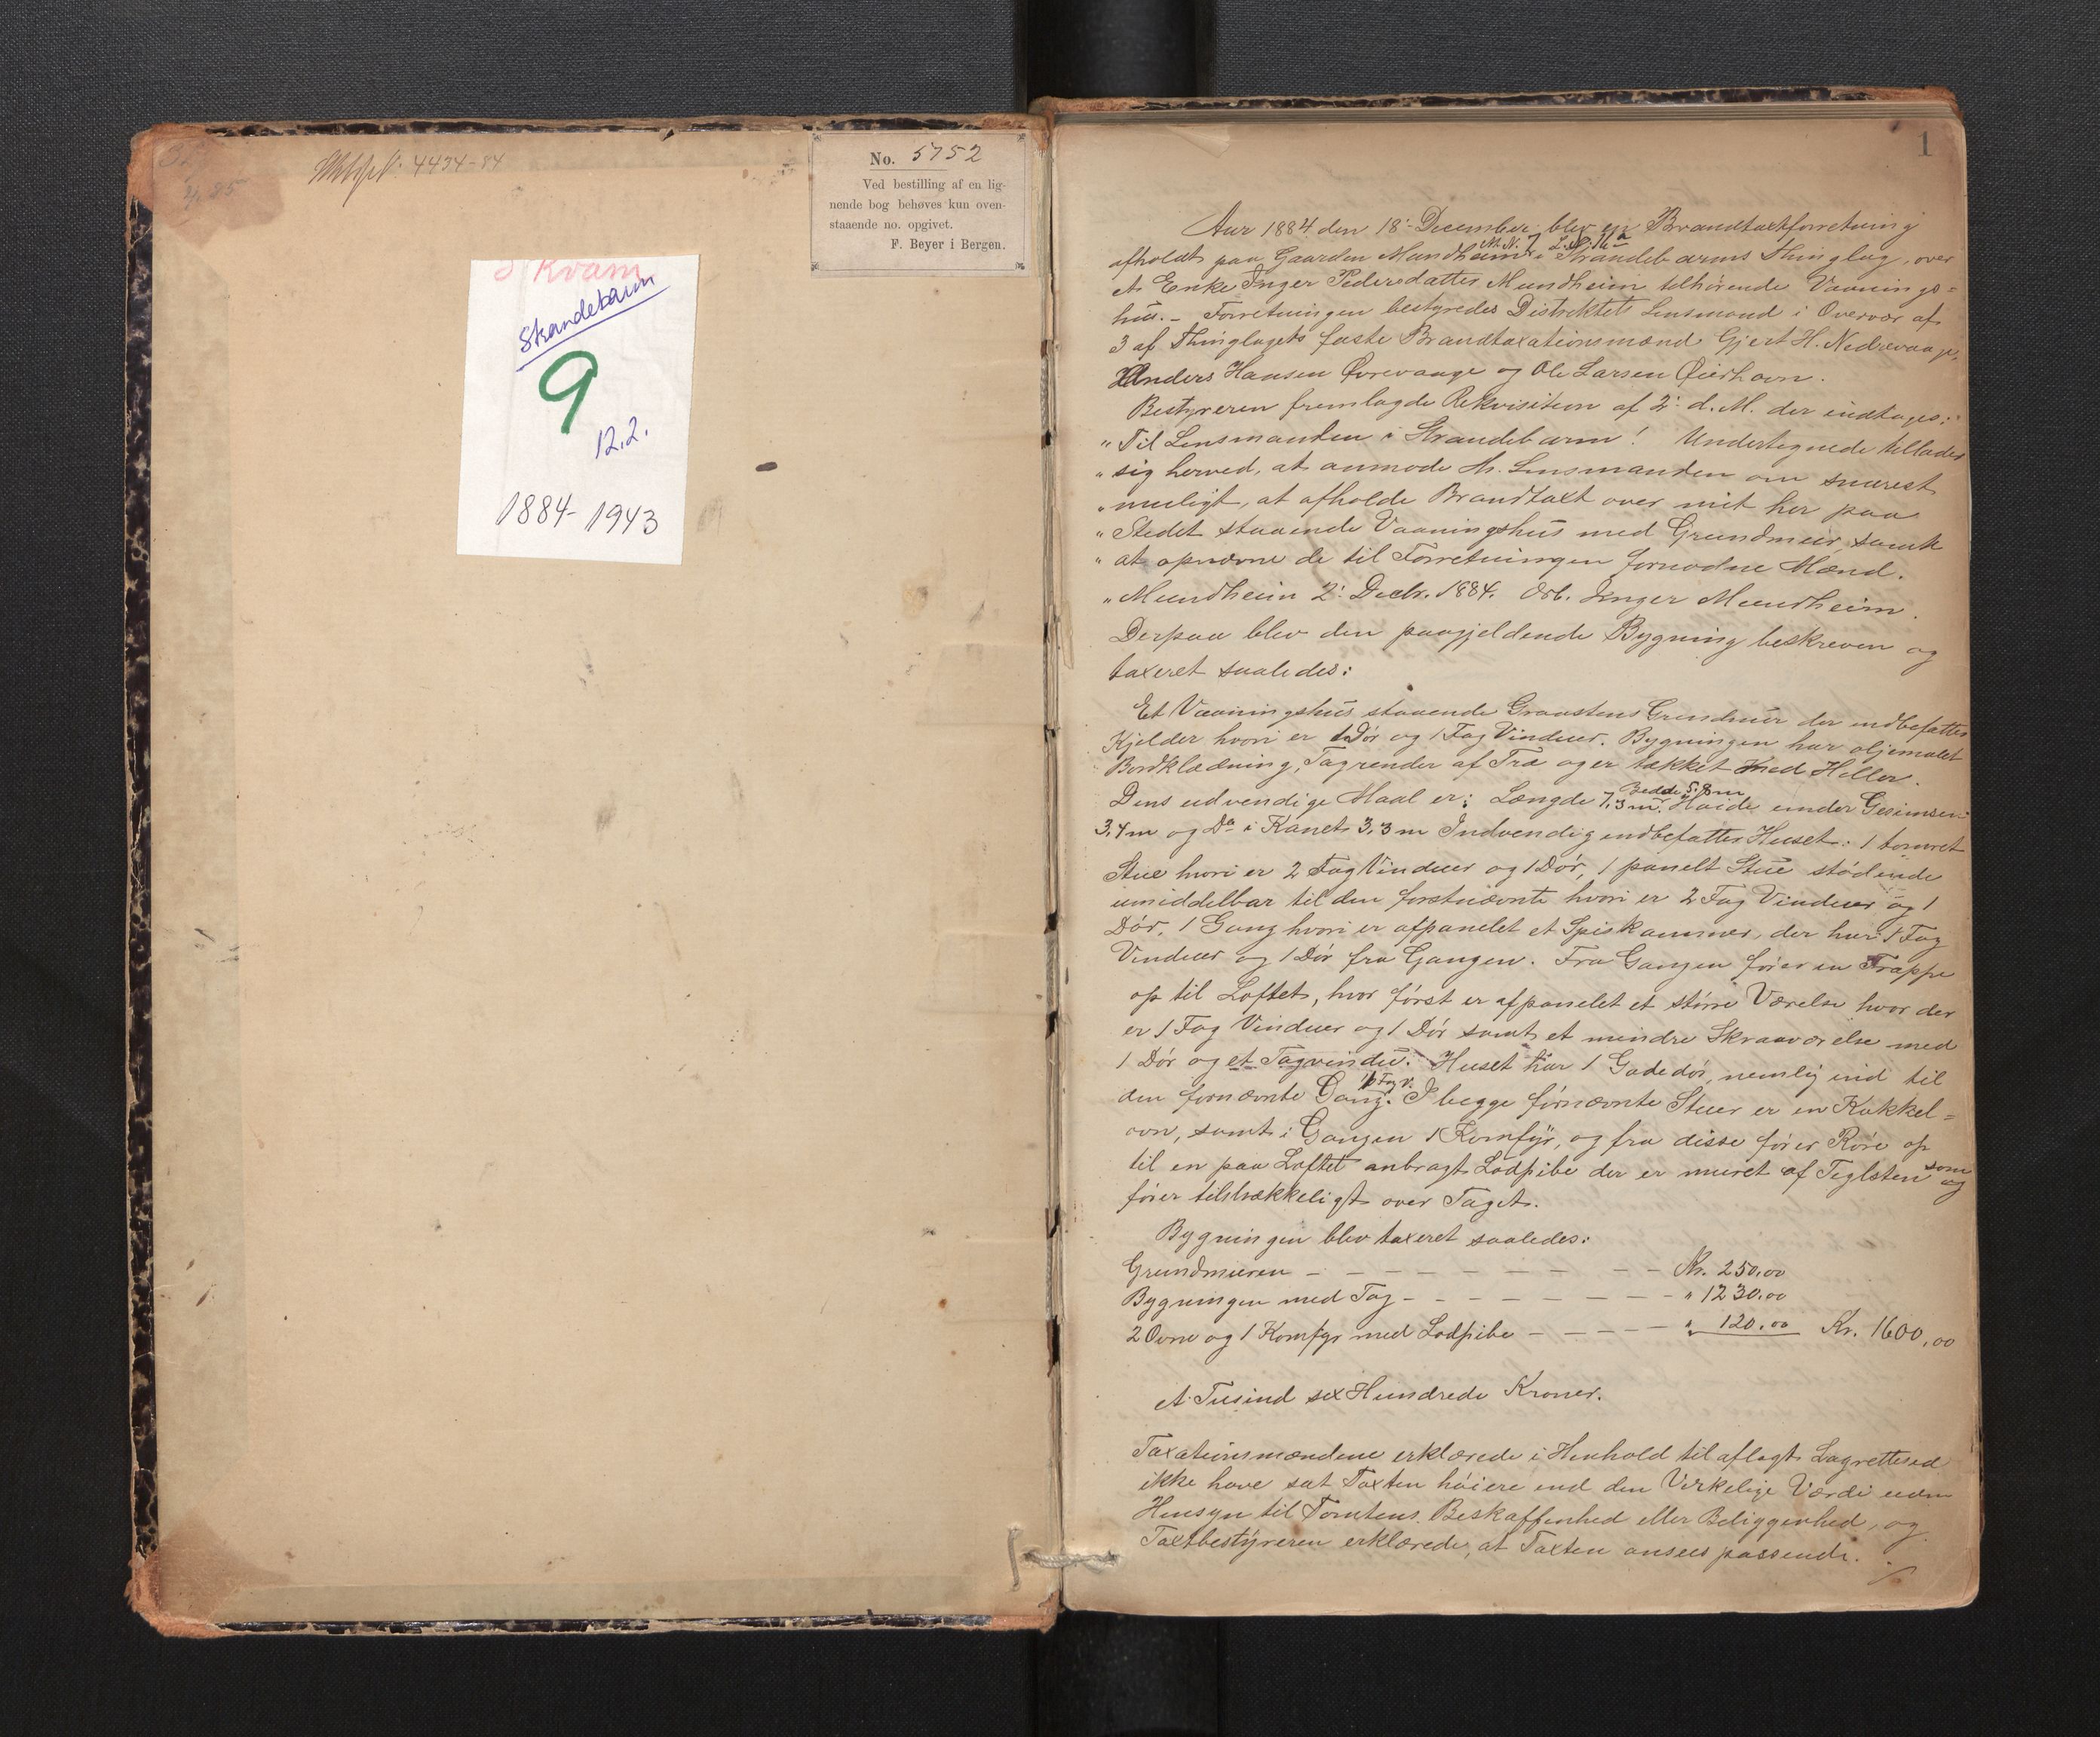 4434-84
No. 5752
Ved bestilling af en lig-
nende bog behøves kun oven-
staaende no. opgivet.
F. Beyer i Bergen.
Kvam
Strandebarm
9
12.2.
1884-1943
1
Aar 1884 den 18: December blev en Brandtaxtforretning
afholdt paa Gaarden Mundheim M. N. 7 L. N. 16a i Strandebarms Thinglag, over
et Enke Inger Pedersdatter Mundheim tilhørende Vaanings=
hus. - Forretningen bestyredes Distriktets Lensmand i Overvær af
3 af Thinglagets faste Brandtaxationsmænd Gjert H. Nedrevaage,
Anders Hansen Øvrevaage og Ole Larsen Øierhavn.
Bestyreren fremlagde Rekvisition af 2: d. M. der indtages:
"Til Lensmanden i Strandebarm! Undertegnede tillader
"sig herved, at anmode Hr. Lensmanden om snarest
"muligt, at afholde Brandtaxt over mit her paa
"Stedet staaende Vaaningshus med Grundmur, samt
"at opnævne de til Forretningen fornødne Mænd.
"Mundheim 2: Decbr. 1884. Erb. Inger Mundheim.
Derpaa blev den paagjeldende Bygning beskreven og
taxeret saaledes:
Et Vaaningshus staaende Graastens Grundmur der indbefatter
Kjelder hvori er 1 Dør og 1 Fag Vinduer. Bygningen har oljemalet
Bordklædning, Tagrender af Træ og er tækket med Heller.
Dens udvendige Maal er: Længde 7,3 m. Bredde 5,8 m Høide under Gesimsen
3,4 m og Do i Kanet 3,3 m Indvendig indbefatter Huset: 1 tømret
Stue hvori er 2 Fag Vinduer og 1 Dør, 1 panelt Stue stødende
umiddelbar til den førstnævnte hvori er 2 Fag Vinduer og 1
Dør, 1 Gang hvori er afpanelet et Spiskammer, der har 1 Fag
Vinduer og 1 Dør fra Gangen. Fra Gangen fører en Trappe
op til Loftet, hvor først er afpanelet et større Værelse hvor der
er 1 Fag Vinduer og 1 Dør samt et mindre Skraaværelse med
1 Dør og et Tagvindu. Huset har 1 Gadedør, nemlig ind til
den fornævnte Gang. 1 Fag V. I begge førnævnte Stuer er en Kakkel=
ovn, samt i Gangen 1 Komfyr, og fra disse fører Røre op
til en paa Loftet anbragt Lodpibe der er muret af Teglsten og som
fører tilstrækkeligt over Taget.
Bygningen blev taxeret saaledes:
Grundmuren - - - - - - - - - - Kr. 250,00
Bygningen med Tag - - - - - - - - - " 1230,00
2 Ovne og 1 Komfyr med Lodpibe - - - - - " 120,00 Kr. 1600,00
et Tusind sex Hundrede Kroner.
Taxationsmændene erklærede i Henhold til aflagt Lagretteed
ikke have sat Taxten høiere end den Virkelige Værdi uden
Hensyn til Tomtens Beskaffenhed eller Beliggenhed, og
Taxtbestyreren erklærede, at Taxten ansees passende.